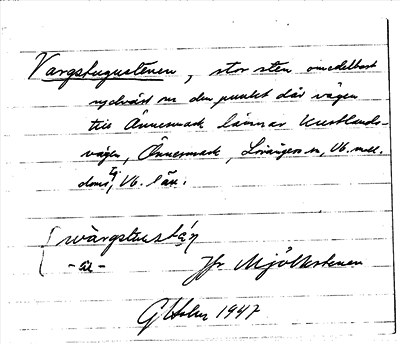 Vargstugustenen, stor sten omedelbart
sydväst om den punkt där vägen
till Ånnesmark lämnar kustlands-
vägen, Ånnesmark, Lövångers sn, Vb. mell.
doms tg, Vb. län.
Jfr. Mjölkstenen
G Holm 1947